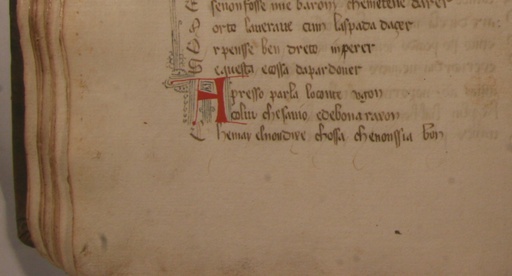 se non fosse me baron che metene da fer
orto lauerane cun la spada dacer
r pensse ben dreto inperer
e questa cossa da pardoner
Apresso parla lo conte ugon
Colui che sauio e de bona raxon
he mai el non dire chossa che non ssia bon